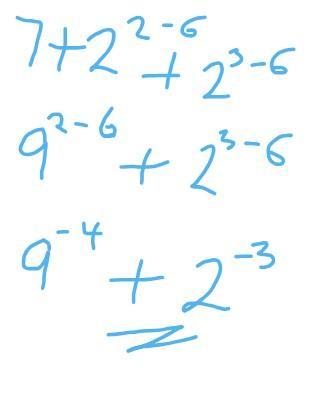 7+2^{2-6} + 2^{3-6}
9^{2-6} + 2^{3-6}
9^{-4} + 2^{-3}